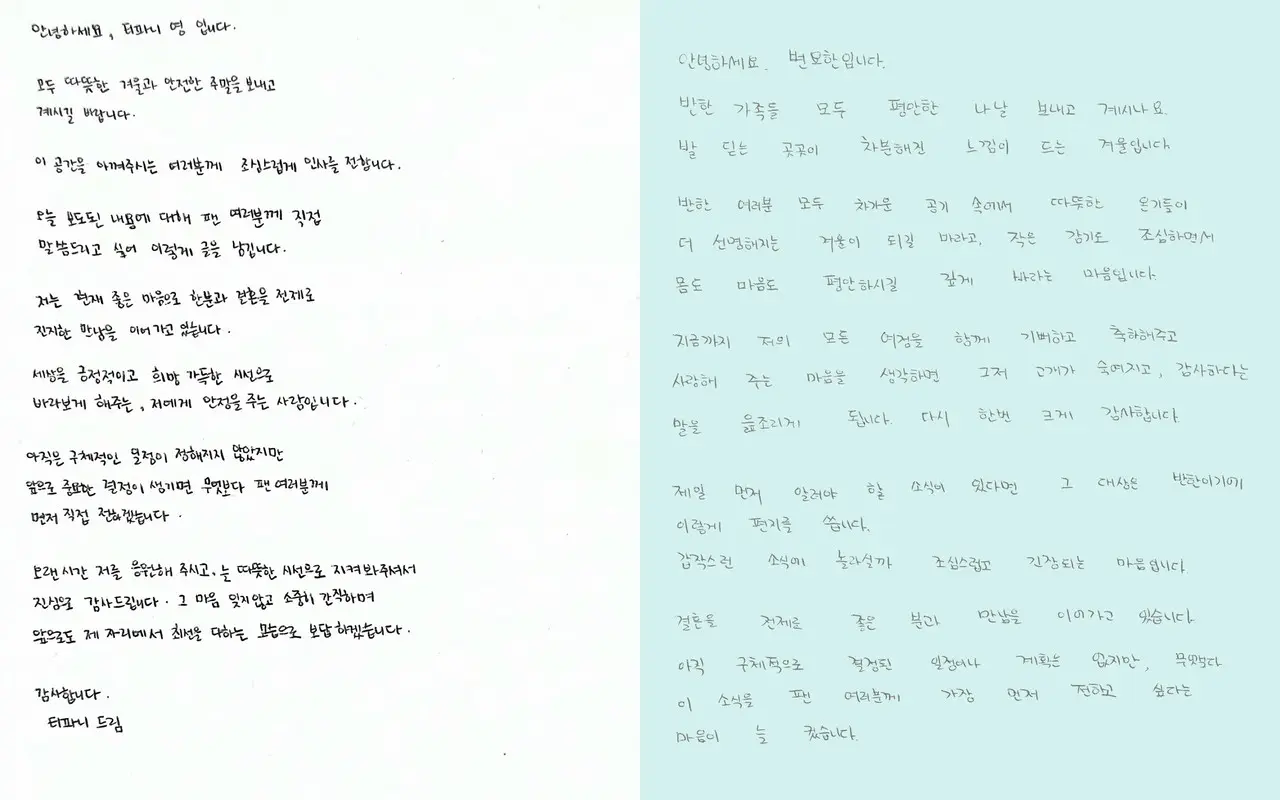 안녕하세요, 티파니 영 입니다.
모두 따뜻한 겨울과 안전한 주말을 보내고
계시길 바랍니다.
이 공간을 아껴주시는 여러분께 조심스럽게 인사를 전합니다.
오늘 보도된 내용에 대해 팬 여러분께 직접
말씀드리고 싶어 이렇게 글을 남깁니다.
저는 현재 좋은 마음으로 한분과 결혼을 전제로
진지한 만남을 이어가고 있습니다.
세상을 긍정적이고 희망 가득한 시선으로
바라보게 해주는, 저에게 안정을 주는 사람입니다.
아직은 구체적인 일정이 정해지지 않았지만
앞으로 중요한 결정이 생기면 무엇보다 팬 여러분께
먼저 직접 전하겠습니다.
오랜시간 저를 응원해 주시고, 늘 따뜻한 시선으로 지켜봐주셔서
진심으로 감사드립니다. 그 마음 잊지않고 소중히 간직하며
앞으로도 제 자리에서 최선을 다하는 모습으로 보답하겠습니다.
감사합니다.
티파니 드림
안녕하세요. 변요한입니다.
반한 가족들 모두 평안한 나날 보내고 계시나요.
발 딛는 곳곳이 차분해진 느낌이 드는 겨울입니다
반한 여러분 모두 차가운 공기 속에서 따뜻한 온기들이
더 선명해지는 겨울이 되길 바라고, 작은 감기도 조심하면서
몸도 마음도 평안하시길 깊게 바라는 마음입니다.
지금까지 저의 모든 여정을 함께 기뻐하고 축하해주고
사랑해 주는 마음을 생각하면 그저 고개가 숙여지고, 감사하다는
말을 읊조리게 됩니다. 다시 한번 크게 감사합니다.
제일 먼저 알려야 할 소식이 있다면 그 대상은 반한이기에
이렇게 편지를 씁니다.
갑작스런 소식에 놀라실까 조심스럽고 긴장되는 마음입니다.
결혼을 전제로 좋은 분과 만남을 이어가고 있습니다
아직 구체적으로 결정된 일정이나 계획은 없지만, 무엇보다
이 소식을 팬 여러분께 가장 먼저 전하고 싶다는
마음이 늘 컸습니다.